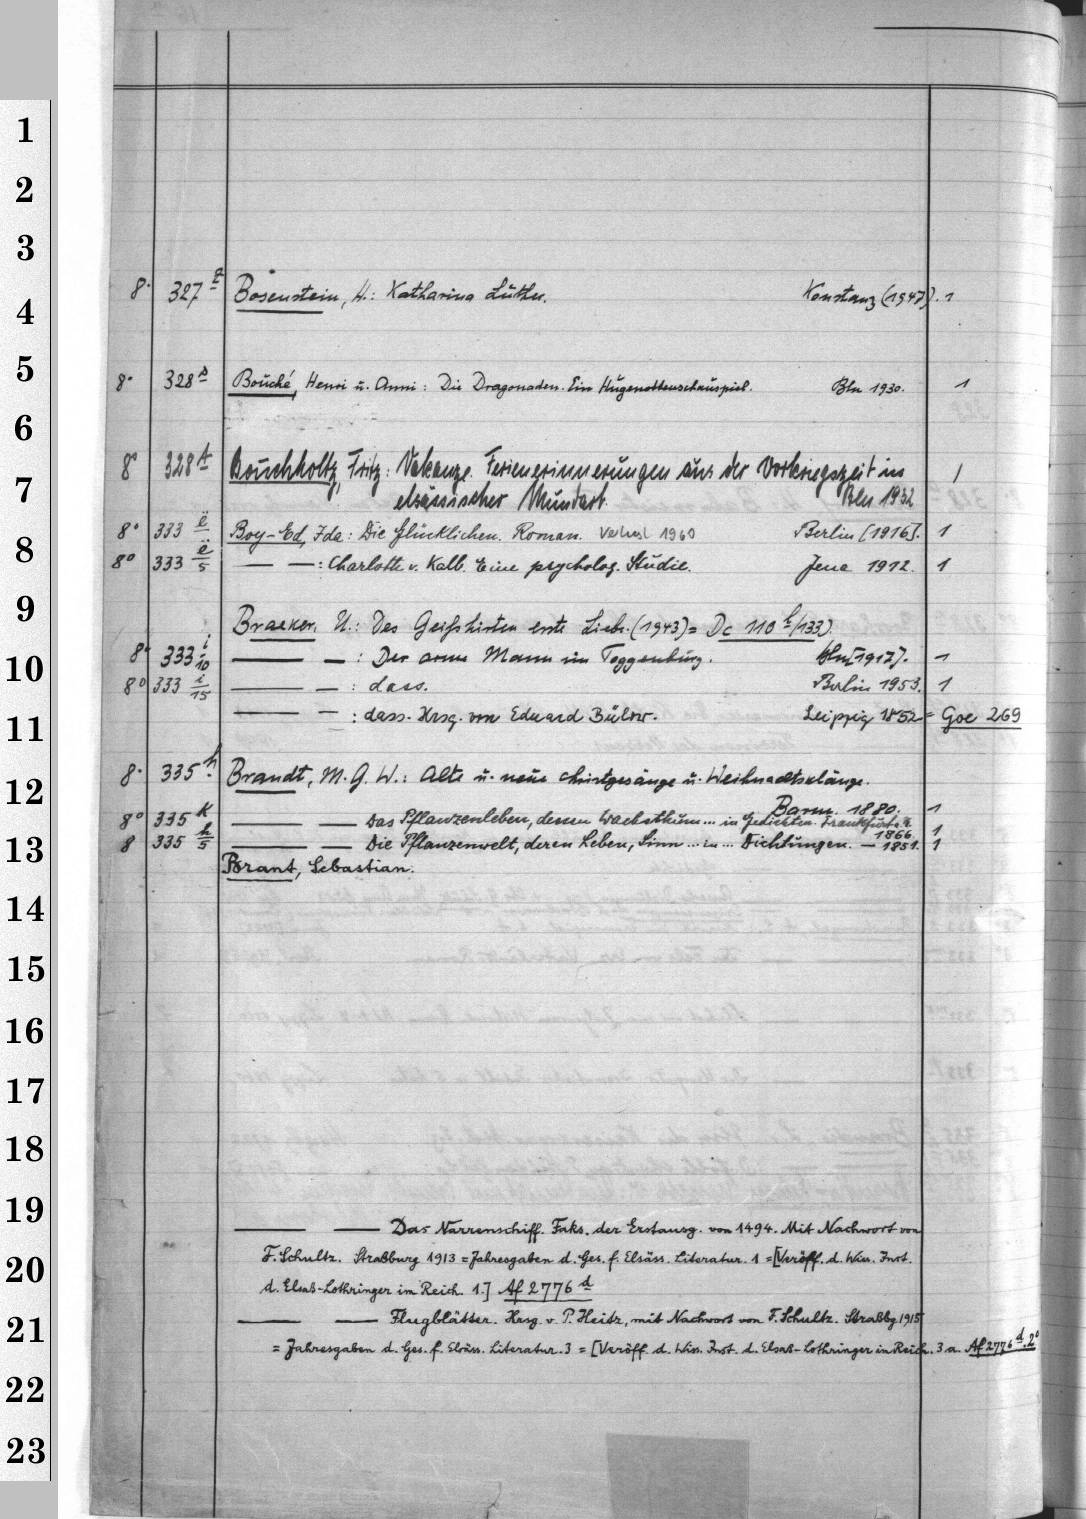 1
2
3
4
5
6
7
8
9
10
11
12
13
14
15
16
17
18
19
20
21
22
23
8° 327 Bosenstein, H.: Katharina Luther. Konstanz (1947). 1
8° 328 s Bouché, Henri u. Anni: Die Dragonaden. Ein Hugenottenschauspiel. Bln 1930. 1
8° 328 t Bouchholtz, Fritz: Vakanze. Ferienerinnerungen aus der Vorkriegszeit in 1
elsässischer Mundart. Bln 1932
8° 333 ë Boy-Ed, Ida: Die Glücklichen. Roman. Verlust 1960 Berlin [1916]. 1
8° 333 ë/5 — —: Charlotte v. Kalb. Eine psycholog. Studie. Jena 1912. 1
Braeker, U.: Des Geißhirten erste Liebe. (1943) = Dc 110 f/133)
8° 333 i/10 — —: Der arme Mann im Toggenburg. Bln [1917]. 1
8° 333 i/15 — —: dass. Berlin 1953. 1
— —: dass. Hrsg. von Eduard Bülow. Leipzig 1852 = Goe 269
8° 335 h Brandt, M. G. W.: Alte u. neue Christgesänge u. Weihnachtsklänge.
Barm. 1880. 1
8° 335 k — — Das Pflanzenleben, dessen Wachsthum ... in Gedichten. Frankfurt a.
1866. 1
8 335 h/5 — — Die Pflanzenwelt, deren Leben, Sinn ... in ... Dichtungen. — 1851. 1
Brant, Sebastian.
— — Das Narrenschiff. Faks. der Erstausg. von 1494. Mit Nachwort von
F. Schultz. Straßburg 1913 = Jahresgaben d. Ges. f. Elsäss. Literatur. 1 = [Veröff. d. Wiss. Inst.
d. Elsaß-Lothringer im Reich. 1.] Af 2776 d
— — Flugblätter. Hrsg. v. P. Heitz, mit Nachwort von F. Schultz. Straßbg 1915
= Jahresgaben d. Ges. f. Elsäss. Literatur. 3 = [Veröff. d. Wiss. Inst. d. Elsaß-Lothringer im Reich. 3 a. Af 2776 d. 2°